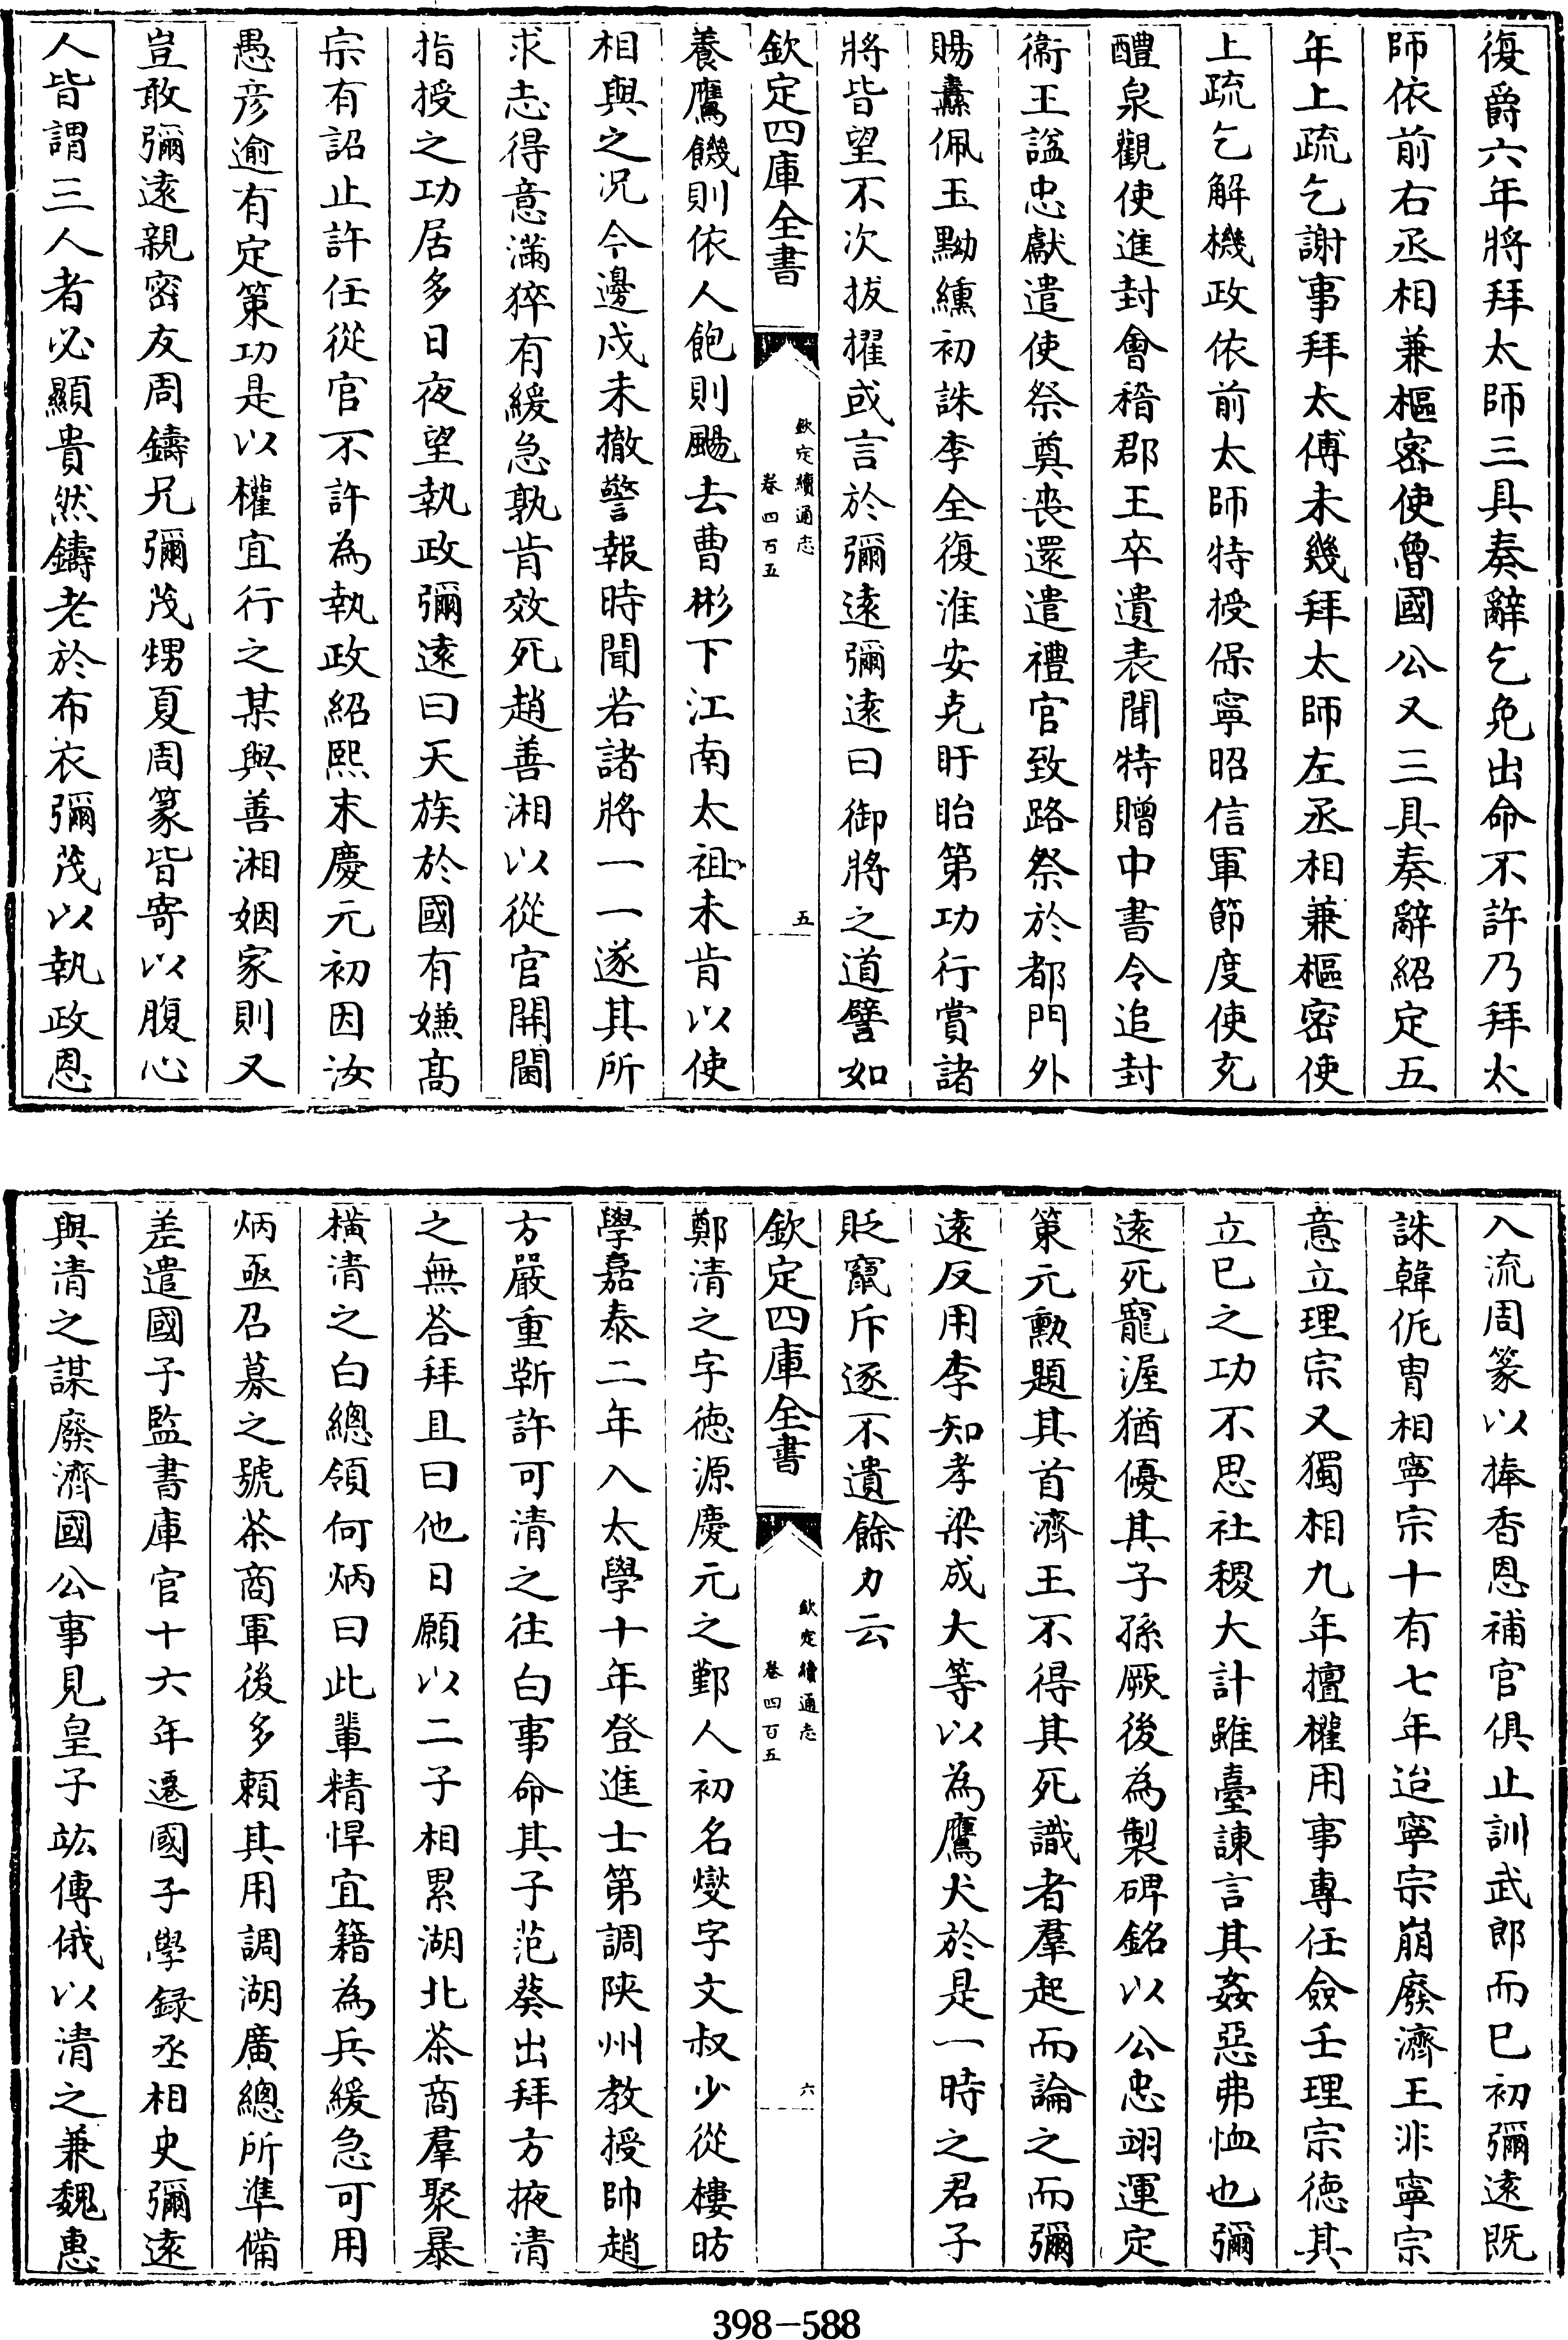 復爵六年將拜太師三具奏辭乞免出命不許乃拜太
師依前右丞相兼樞密使魯國公又三具奏辭紹定五
年上疏乞謝事拜太傅未幾拜太師左丞相兼樞密使
上疏乞解機政依前太師特授保寧昭信軍節度使充
醴泉觀使進封會稽郡王卒遺表聞特贈中書令追封
衞王謚忠獻遣使祭奠喪還遣禮官致路祭於都門外
賜纛佩玉黝纁初誅李全復淮安克盱眙第功行賞諸
將皆望不次拔擢或言於彌遠彌遠曰御將之道譬如
欽定四庫全書
欽定續通志
卷四百五
五
養鷹饑則依人飽則颺去曹彬下江南太祖未肯以使
相與之况今邊戍未撤警報時聞若諸將一一遂其所
求志得意滿猝有緩急孰肯效死趙善湘以從官開閫
指授之功居多日夜望執政彌遠曰天族於國有嫌高
宗有詔止許任從官不許為執政紹熙末慶元初因汝
愚彦逾有定策功是以權宜行之某與善湘姻家則又
豈敢彌遠親密友周鑄兄彌茂甥夏周篆皆寄以腹心
人皆謂三人者必顯貴然鑄老於布衣彌茂以執政恩
入流周篆以捧香恩補官俱止訓武郎而已初彌遠既
誅韓侂胄相寧宗十有七年迨寧宗崩廢濟王非寧宗
意立理宗又獨相九年擅權用事專任儉壬理宗德其
立已之功不思社稷大計雖臺諫言其姦惡弗恤也彌
遠死寵渥猶優其子孫厥後為製碑銘以公忠翊運定
策元勳題其首濟王不得其死識者羣起而論之而彌
遠反用李知孝梁成大等以為鷹犬於是一時之君子
貶竄斥逐不遺餘力云
欽定四庫全書
欽定續通志
卷四百五
六
鄭清之字德源慶元之鄞人初名燮字文叔少從樓昉
學嘉泰二年入太學十年登進士第調陝州教授帥趙
方嚴重靳許可清之往白事命其子范葵出拜方掖清
之無荅拜且曰他日願以二子相累湖北茶商羣聚暴
橫清之白總領何炳曰此輩精悍宜籍為兵緩急可用
炳亟召募之號茶商軍後多賴其用調湖廣總所準備
差遣國子監書庫官十六年遷國子學録丞相史彌遠
與清之謀廢濟國公事見皇子竑傳俄以清之兼魏惠
398-588